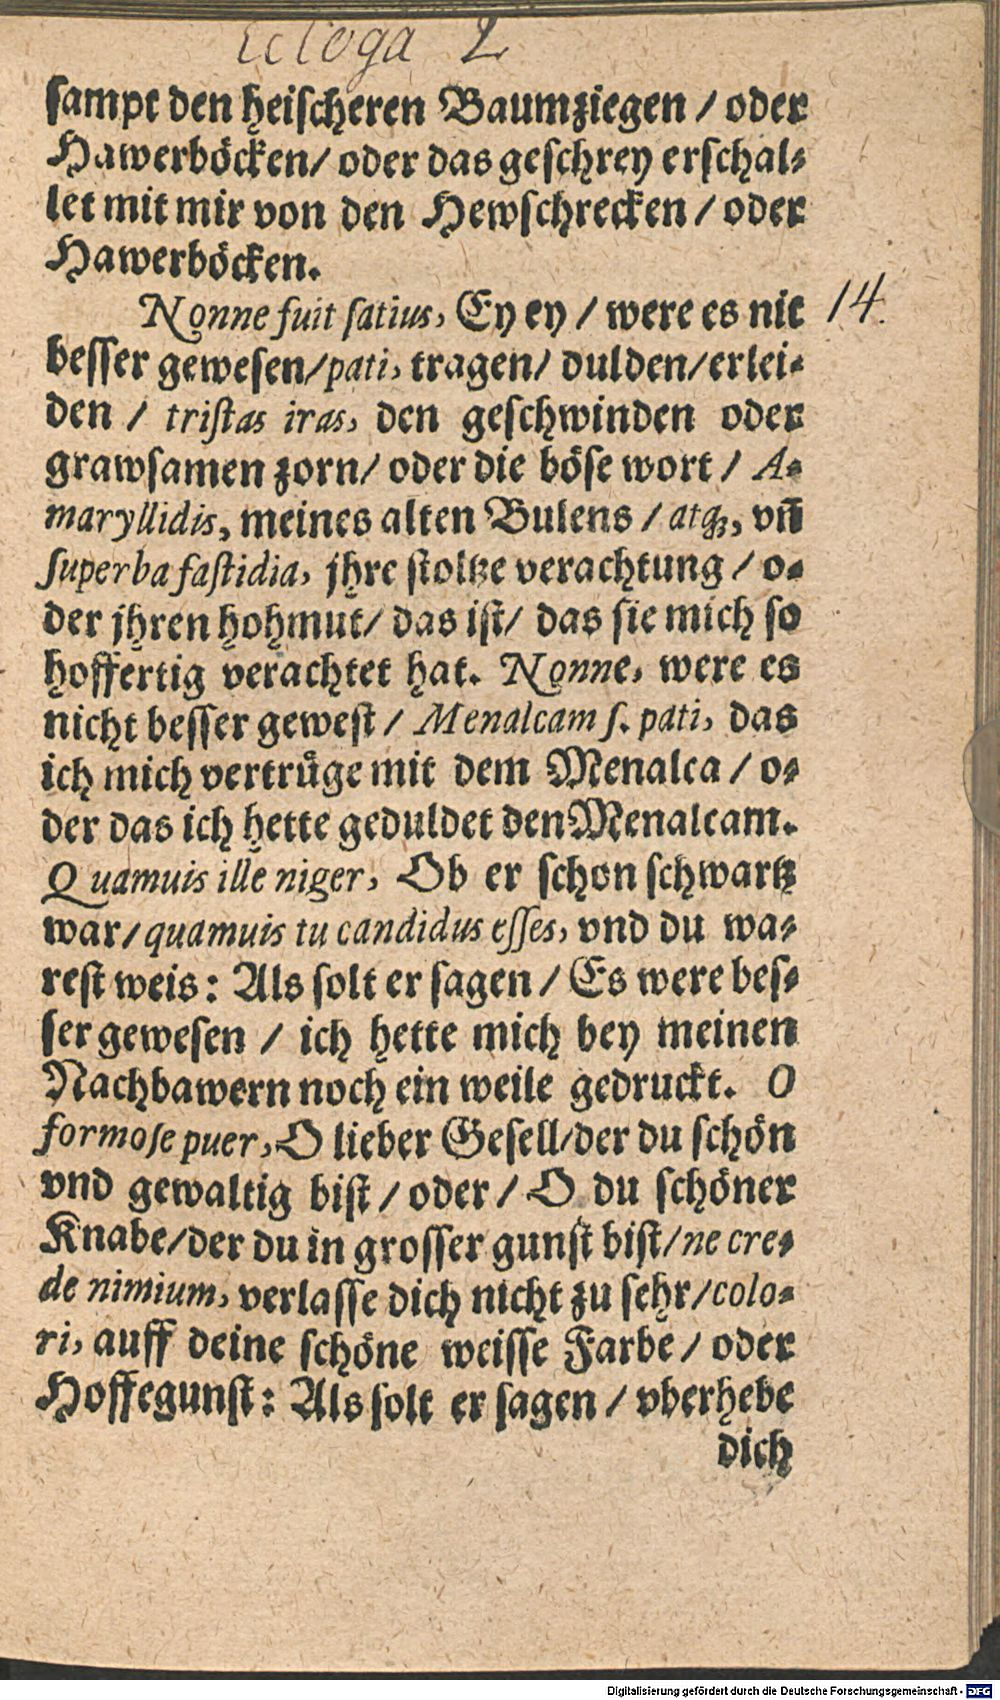 Ecloga 2
sampt den heischeren Baumziegen / oder
Hawerböcken / oder das geschrey erschal⸗
let mit mir von den Hewschrecken / oder
Hawerböcken.
Nonne fuit satius, Ey ey / were es nit 14.
besser gewesen / pati, tragen / dulden / erlei⸗
den / tristas iras, den geschwinden oder
grawsamen zorn / oder die böse wort / A⸗
maryllidis, meines alten Bulens / atq;, vñ
superba fastidia, jhre stoltze verachtung / o⸗
der jhren hohmut / das ist / das sie mich so
hoffertig verachtet hat. Nonne, were es
nicht besser gewest / Menalcam s. pati, das
ich mich vertrüge mit dem Menalca / o⸗
der das ich hette geduldet den Menalcam.
Quamuis ille niger, Ob er schon schwartz
war / quamuis tu candidus esses, vnd du wa⸗
rest weis: Als solt er sagen / Es were bes⸗
ser gewesen / ich hette mich bey meinen
Nachbawern noch ein weile gedruckt. O
formose puer, O lieber Gesell / der du schön
vnd gewaltig bist / oder / O du schöner
Knabe / der du in grosser gunst bist / ne cre⸗
de nimium, verlasse dich nicht zu sehr / colo⸗
ri, auff deine schöne weisse Farbe / oder
Hoffegunst: Als solt er sagen / vberhebe
dich
Digitalisierung gefördert durch die Deutsche Forschungsgemeinschaft - DFG